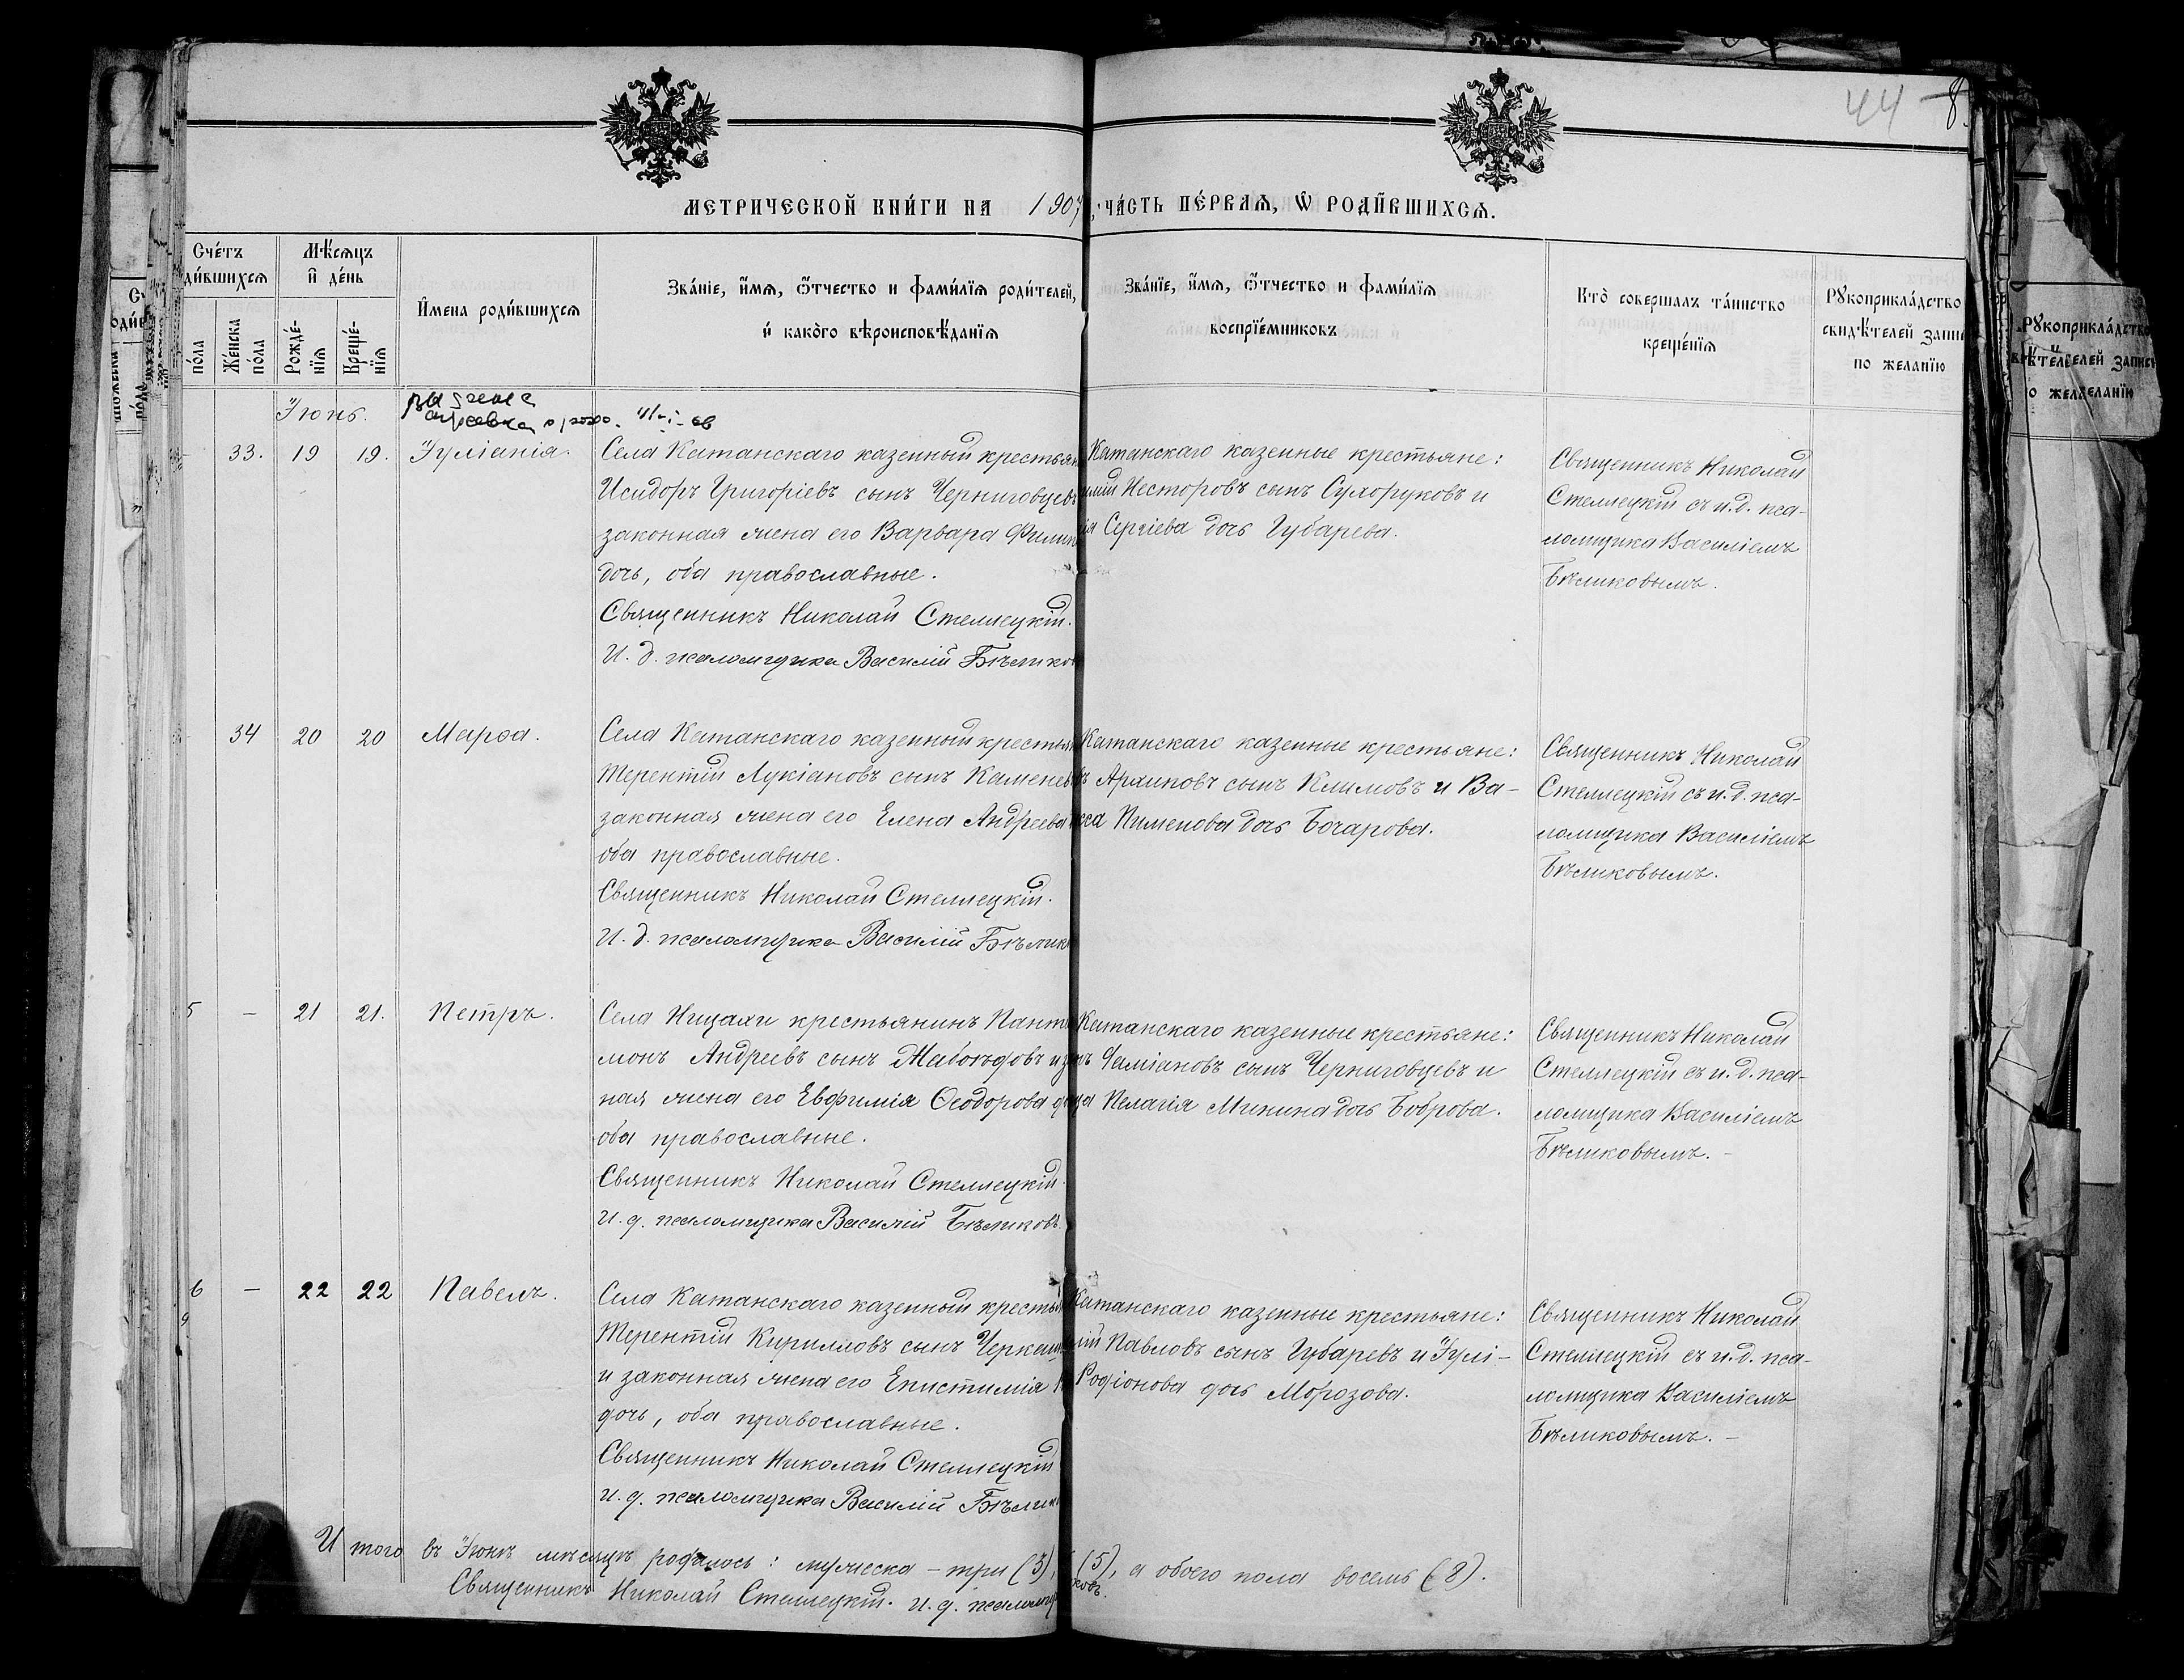 44 8.
МЕТРИЧЕСКОЙ КНИ́ГИ НА 1907, ЧА́СТЬ ПЕ́РВАѦ, Ѡ РОДИ́ВШИХСѦ.
Сче́тъ
ди́вшихсѧ
Мѣ́сѧцъ
и де́нь
И́мена роди́вшихсѧ
Зва́нїе, и́мѧ, ѻ́тчество и фами́лїѧ роди́телей,
и како́го вѣроисповѣ́данїѧ
Зва́нїе, и́мѧ, ѻ́тчество и фами́лїѧ
воспрїе́мниковъ
Кто̀ совершалъ та́инство
креще́нїѧ
Рꙋкоприкла́дство
свидѣ́телей запи
по желанїю
по́ла
Же́нска
по́ла
Рожде́-
нїѧ
Креще́-
нїѧ
Іюнь.
33. 19 19. Іуліанія.
Села Катанскаго казенный крестьян
Исидоръ Григоріевъ сынъ Черниговцевъ
законная жена его Варвара Филип
дочь, оба православные.
Священникъ Николай Стеллецкій.
И. д. псаломщика Василій Бѣликов
Катанскаго казенные крестьяне:
Несторовъ сынъ Сухоруковъ и
Сергіева дочь Губарева.
Священникъ Николай
Стеллецкій съ и. д. пса-
ломщика Василіемъ
Бѣликовымъ.
34 20 20 Марѳа.
Села Катанскаго казенный крестьян
Терентій Лукіановъ сынъ Каменев
законная жена его Елена Андреева
оба православные.
Священникъ Николай Стеллецкій.
И. д. псаломщика Василій Бѣлик
Катанскаго казенные крестьяне:
въ Архиповъ сынъ Климовъ и Ва-
са Пименова дочь Бочарова.
Священникъ Николай
Стеллецкій съ и. д. пса-
ломщика Василіемъ
Бѣликовымъ.
5 - 21 21. Петръ.
Села Ницахи крестьянинъ Панте
монъ Андреевъ сынъ
ная жена его Евфимія Ѳеодорова
оба православные.
Священникъ Николай Стеллецкій
И. д. псаломщика Василій Бѣликовъ.
Катанскаго казенные крестьяне:
сынъ Черниговцевъ и
Пелагія Минина дочь Боброва.
Священникъ Николай
Стеллецкій съ и. д. пса-
ломщика Василіемъ
Бѣликовымъ. -
6 - 22 22 Павелъ.
Села Катанскаго казенный кресть
Терентій Кирилловъ сынъ
и законная жена его Епистимія
дочь, оба православные.
Священникъ Николай Стеллецкій
И. д. псаломщика Василій Бѣлик
Катанскаго казенные крестьяне:
Павловъ сынъ Губаревъ и Іулі-
Родіонова дочь Морозова.
Священникъ Николай
Стеллецкій съ и. д. пса-
ломщика Василіемъ
Бѣликовымъ. -
Итого въ Іюнѣ мѣсяцѣ родилось: мужеска - три (3), (5), а обоего пола восемь (8).
Священникъ Николай Стеллецкій. И. д. псаломщ ковъ.